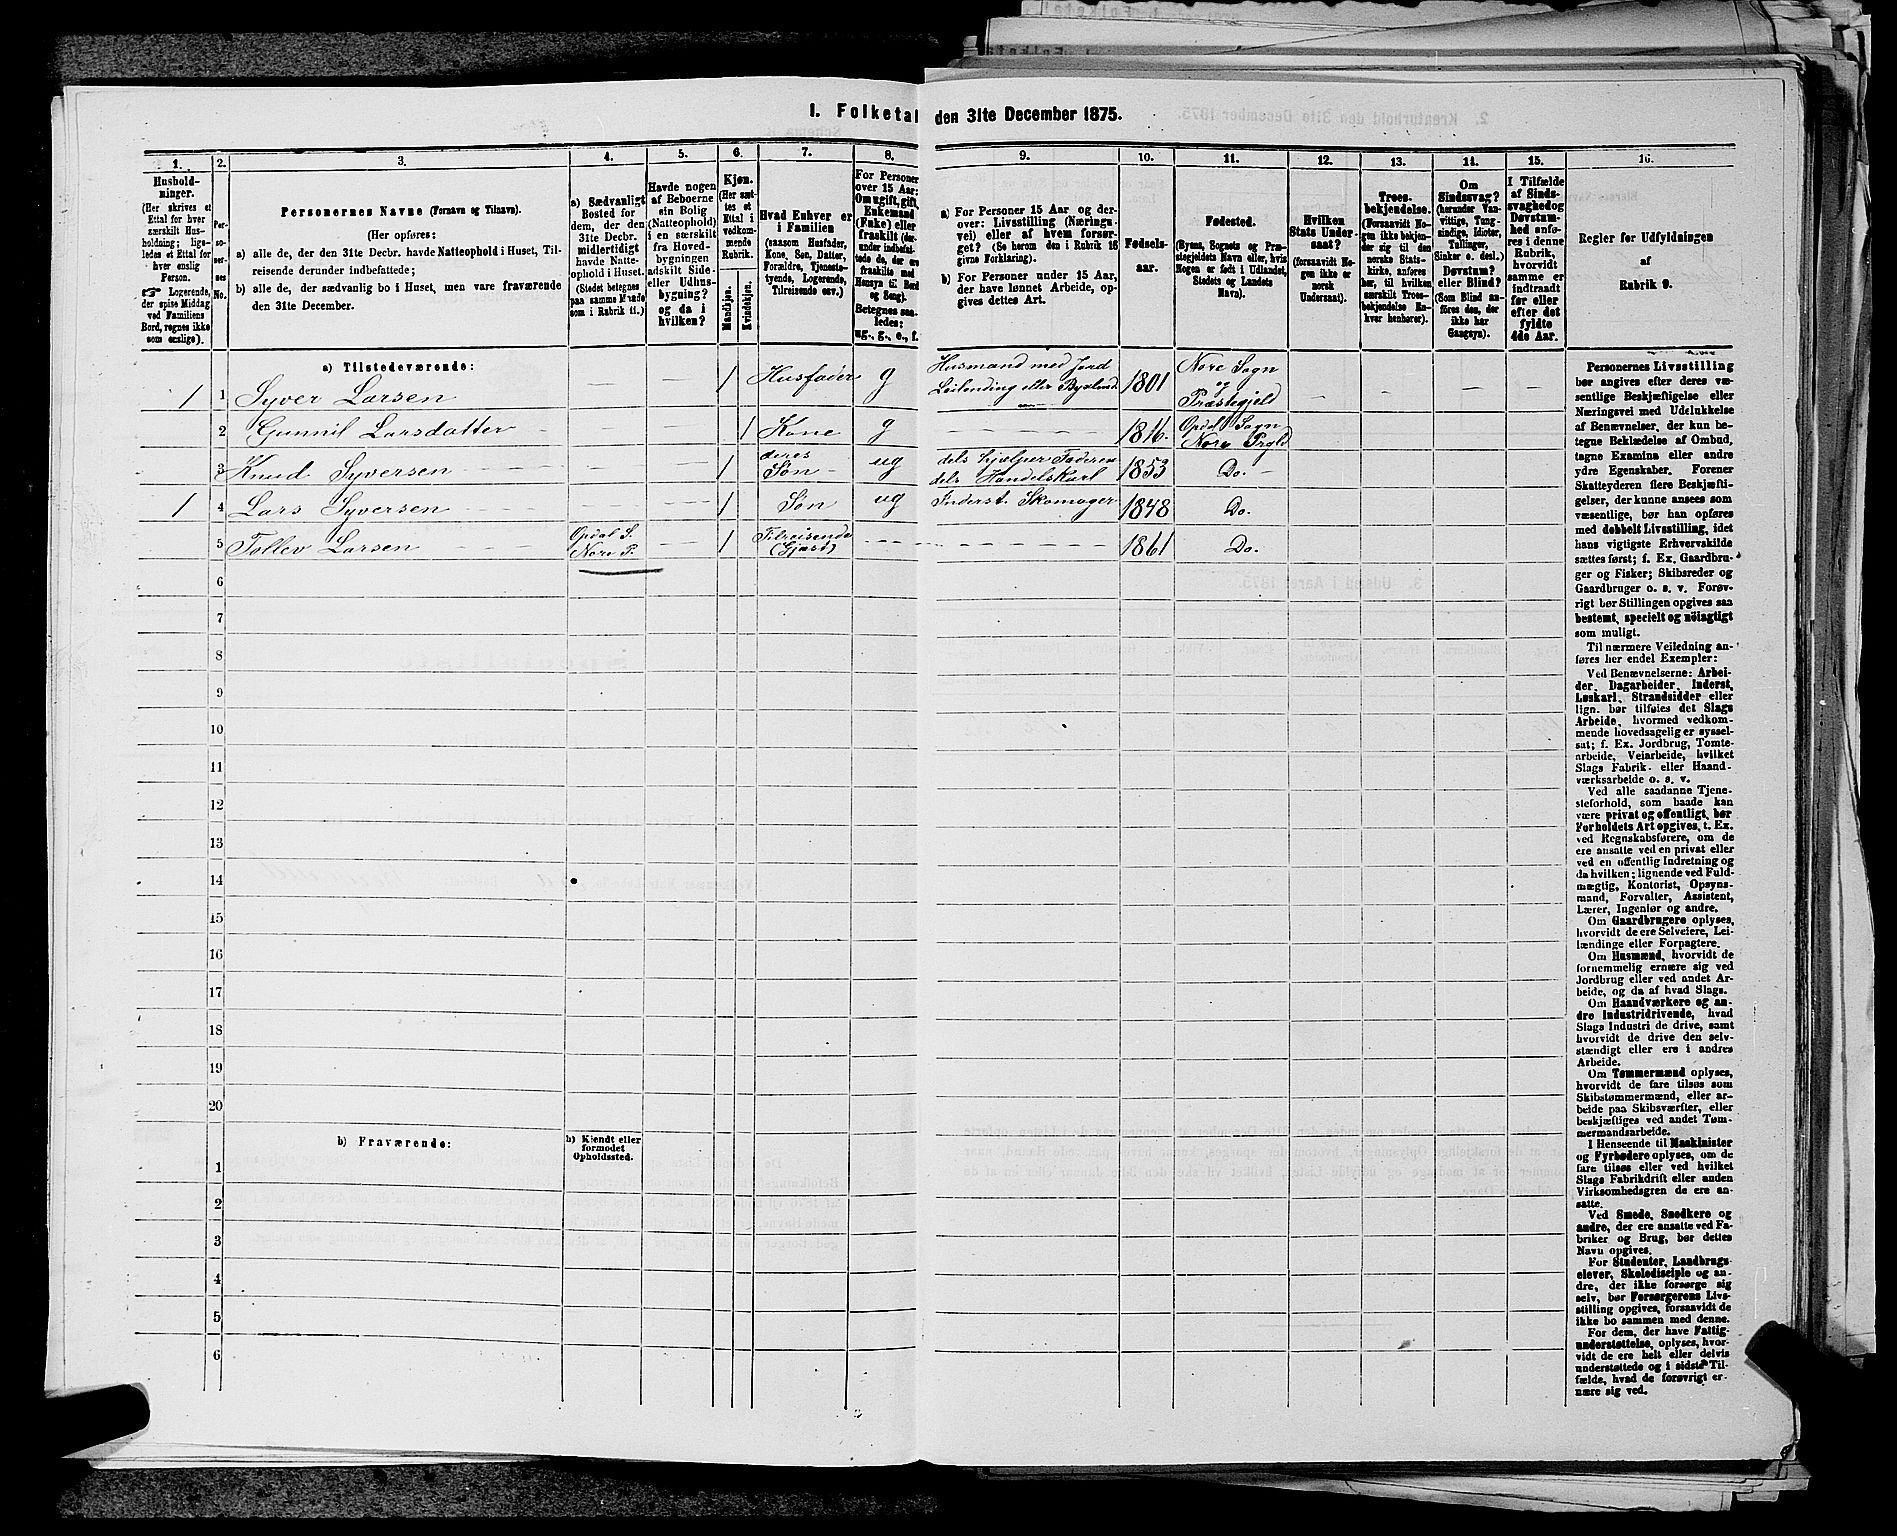 I. Folketal den 31te December 1875.
1. 2. 3. 4. 5. 6. 7. 8. 9. 10. 11. 12. 13. 14. 15. 16.
Hushold-
ninger.
(Her skrives et
Ettal for hver
særskilt Hus-
holdning; lige-
ledes et Ettal for
hver enslig
Person.
☞ Logerende,
der spise Middag
ved Familiens
Bord, regnes ikke
som enslige).
Per-
so-
ner-
nes
No.
Personernes Navne (Fornavn og Tilnavn).
(Her opføres:
a) alle de, der den 31te Decbr. havde Natteophold i Huset, Til-
reisende derunder indbefattede;
b) alle de, der sædvanlig bo i Huset, men vare fraværende
den 31te December.
a) Sædvanligt
Bosted for
dem, der den
31te Decbr.
midlertidigt
havde Natte-
ophold i Huset.
(Stedet betegnes
paa samme Maade
som i Rubrik 11.)
Havde nogen
af Beboerne
sin Bolig
(Natteophold)
i en særskilt
fra Hoved-
bygningen
adskilt Side-
eller Udhus-
bygning?
og da i
hvilken?
Kjøn.
(Her sæt-
tes et
Ettal i
vedkom-
mende
Rubrik.
Mandkjøn.
Kvindekjøn.
Hvad Enhver er
i Familien
(saasom Husfader,
Kone, Søn, Datter,
Forældre, Tjeneste-
tyende, Logerende,
Tilreisende osv.)
For Personer
over 15 Aar:
Om ugift, gift,
Enkemand
(Enke) eller
fraskilt (der-
under indbefat-
tede de, der ere
fraskilte med
Hensyn til Bord
og Seng).
Betegnes saa-
ledes:
ug., g., e., f.
a) For Personer 15 Aar og der-
over: Livsstilling (Nærings-
vei) eller af hvem forsør-
get? (Se herom den i Rubrik 16
givne Forklaring).
b) For Personer under 15 Aar,
der have lønnet Arbeide, op-
gives dettes Art.
Fødsels-
aar.
Fødested.
(Byens, Sognets og Præ-
stegjeldets Navn eller, hvis
Nogen er født i Udlandet,
Stedets og Landets
Navn).
Hvilken
Stats Under-
saat?
(forsaavidt No-
gen ikke er
norsk
Undersaat).
Troes-
bekjendelse.
(Forsaavidt No-
gen ikke bekjen-
der sig til den
norske Stats-
kirke, anføres
her, til hvilken
særskilt Troes-
bekjendelse En-
hver henhører).
Om
Sindssvag?
(herunder Van-
vittige, Tung-
sindige, Idioter,
Tullinger,
Sinker o. desl.)
Døvstum?
eller Blind?
(Som Blind an-
føres den, der
ikke har
Gangsyn).
I Tilfælde
af Sinds-
svaghed og
Døvstum-
hed anfø-
res i denne
Rubrik,
hvorvidt
samme er
indtraadt
før eller
efter det
fyldte
4de Aar.
Regler for Udfyldningen
af
Rubrik 9.
a) Tilstedeværende:
1 1 Syver Larsen — — 1 Husfader g Husmand med Jord Leilending eller Bygselmd. 1801 Nore Sogn og Præstegjeld
2 Gunnil Larsdatter 1 Kone g 1816. Opdal Sogn Nore Prgld
3 Knud Syversen 1 deres Søn ug dels hjælper Faderen dels Handelskarl 1853 Do.
1 4 Lars Syversen 1 Søn ug Inderst. Skomager 1848 Do.
5 Tollev Larsen Opdal S. Nore P. 1 Tilreisende (Gjæst) 1861 Do.
6
7
8
9
10
11
12
13
14
15
16
17
18
19
20
b) Fraværende:
b) Kjendt eller
formodet
Opholdssted.
1
2
3
4
5
6
Personernes Livsstilling
bør angives efter deres væ-
sentlige Beskjæftigelse eller
Næringsvei med Udelukkelse
af Benævnelser, der kun be-
tegne Beklædelse af Ombud,
tagne Examina eller andre
ydre Egenskaber. Forener
Skatteyderen flere Beskjæfti-
gelser, der kunne ansees som
væsentlige, bør han opføres
med dobbelt Livsstilling, idet
hans vigtigste Erhvervskilde
sættes først; f. Ex. Gaardbru-
ger og Fisker; Skibsreder og
Gaardbruger o. s. v. Forøv-
rigt bør Stillingen opgives saa
bestemt, specielt og nøiagtigt
som muligt.
Til nærmere Veiledning an-
føres her endel Exempler:
Ved Benævnelserne: Arbei-
der, Dagarbeider, Inderst,
Løskarl, Strandsidder eller
lign. bør tilføies det Slags
Arbeide, hvormed vedkom-
mende hovedsagelig er syssel-
sat; f. Ex. Jordbrug, Tomte-
arbeide, Veiarbeide, hvilket
Slags Fabrik- eller Haand-
værksarbeide o. s. v.
Ved alle saadanne Tjene-
steforhold, som baade kan
være privat og offentligt, bør
Forholdets Art opgives, t. Ex.
ved Regnskabsførere, om de
ere ansatte ved en privat eller
ved en offentlig Indretning og
da hvilken; lignende ved Fuld-
mægtig, Kontorist, Opsyns-
mand, Forvalter, Assistent,
Lærer, Ingeniør og andre.
Om Gaardbrugere oplyses,
hvorvidt de ere Selveiere, Lei-
lændinge eller Forpagtere.
Om Husmænd, hvorvidt de
fornemmelig ernære sig ved
Jordbrug eller ved andet Ar-
beide, og da af hvad Slags.
Om Haandværkere og an-
dre Industridrivende, hvad
Slags Industri de drive, samt
hvorvidt de drive den selv-
stændigt eller ere i andres
Arbeide.
Om Tømmermænd oplyses,
hvorvidt de fare tilsøs som
Skibstømmermænd, eller ar-
beide paa Skibsværfter, eller
beskjæftiges ved andet Tøm-
mermandsarbeide.
I Henseende til Maskinister
og Fyrbødere oplyses, om de
fare tilsøs eller ved hvilket
Slags Fabrikdrift eller anden
Virksomhedsgren de ere an-
satte.
Ved Smede, Snedkere og
andre, der ere ansatte ved Fa-
briker og Brug, bør dettes
Navn opgives.
For Studenter, Landbrugs-
elever, Skoledisciple og an-
dre, der ikke forsørge sig
selv, bør Forsørgerens Livs-
stilling opgives, forsaavidt de
ikke bo sammen med denne.
For dem, der have Fattig-
understøttelse, oplyses, hvor-
vidt de ere helt eller delvis
understøttede og i sidste Til-
fælde, hvad de forøvrigt er-
nære sig ved.